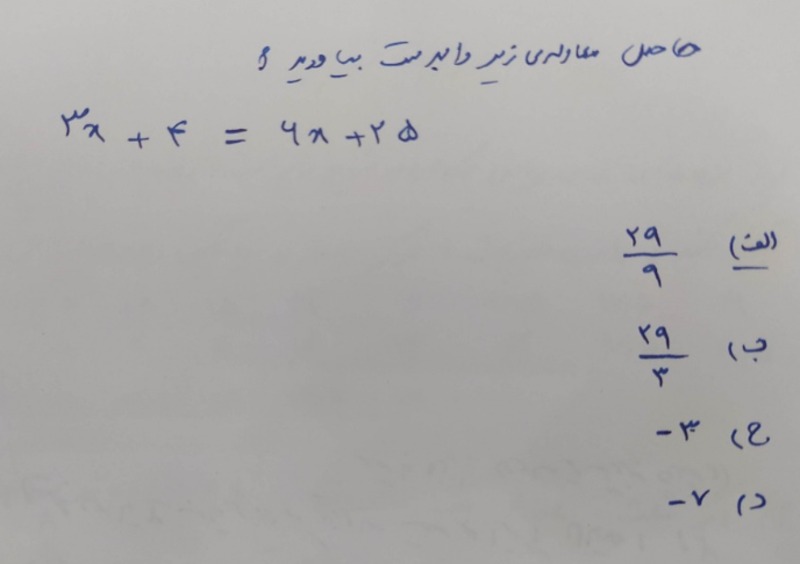 حاصل معادله‌ی زیر را بدست بیاورید ؟
۳x + ۴ = ۶x + ۲۵
الف) ۲۹/۹
ب) ۲۹/۳
ج) -۳
د) -۷